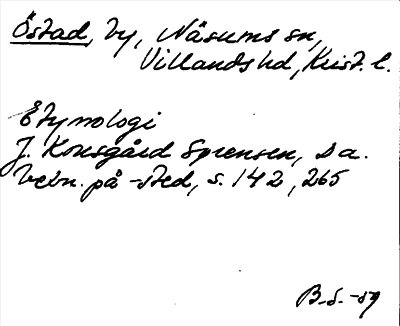 Östad, by, Näsums sn,
Villands hd, Krist. l.
Etymologi
J. Kousgård Sørensen, Da.
bebn. på -sted, s. 142, 265
B.S. -59